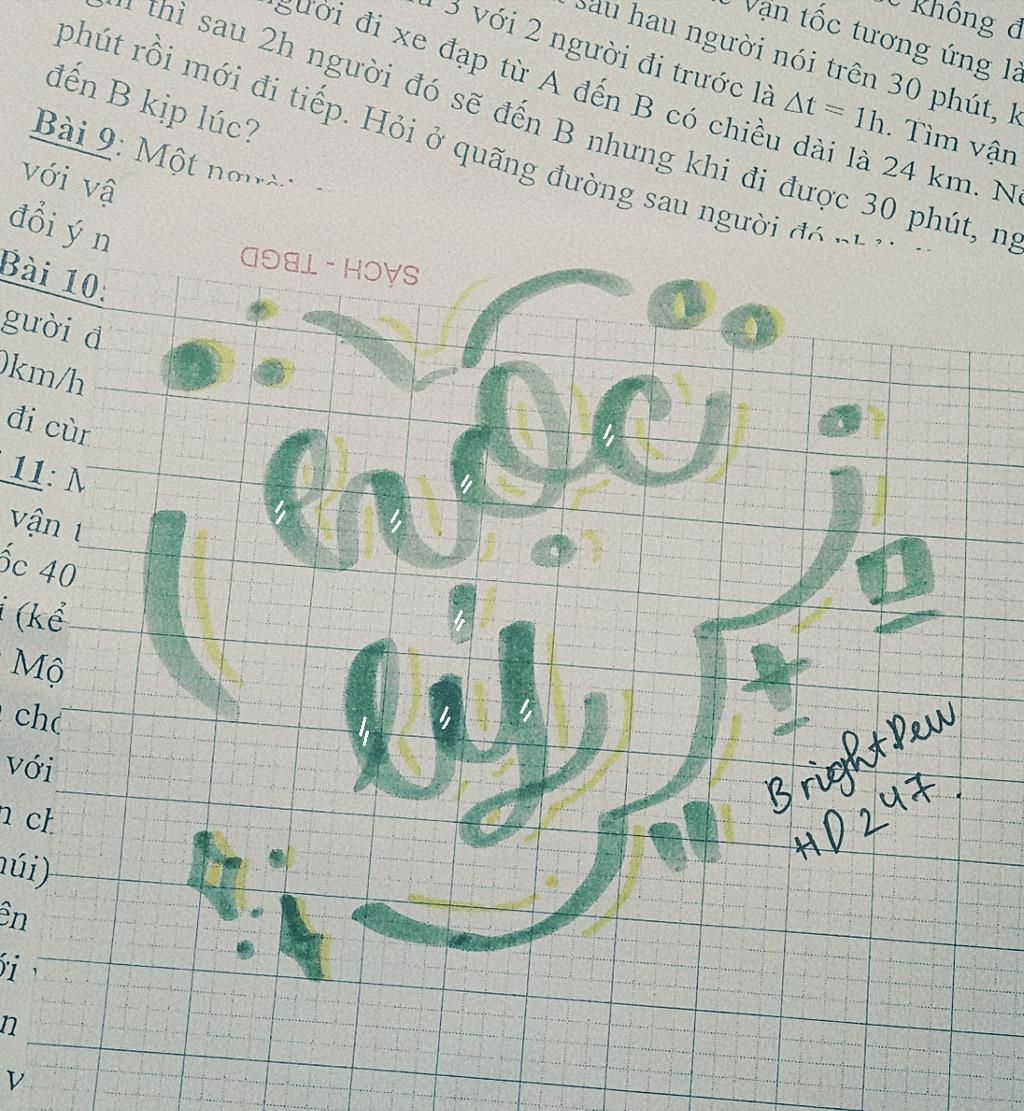 3 với 2 người đi trước là Δt = 1h. Tìm vận
vận tốc tương ứng là
sau hau người nói trên 30 phút, k
người đi xe đạp từ A đến B có chiều dài là 24 km.
thì sau 2h người đó sẽ đến B nhưng khi đi được 30 phút, ng
phút rồi mới đi tiếp. Hỏi ở quãng đường sau người đó
đến B kịp lúc?
Bài 9: Một người
với vậ
đổi ý n
Bài 10:
gười đ
0km/h
đi cùn
11: M
vận t
ốc 40
i (kể
Mộ
chơ
với
n ch
núi)
ên
ới
n
v
SÁCH - TBGD
học
lý
BrightDew
HD247.